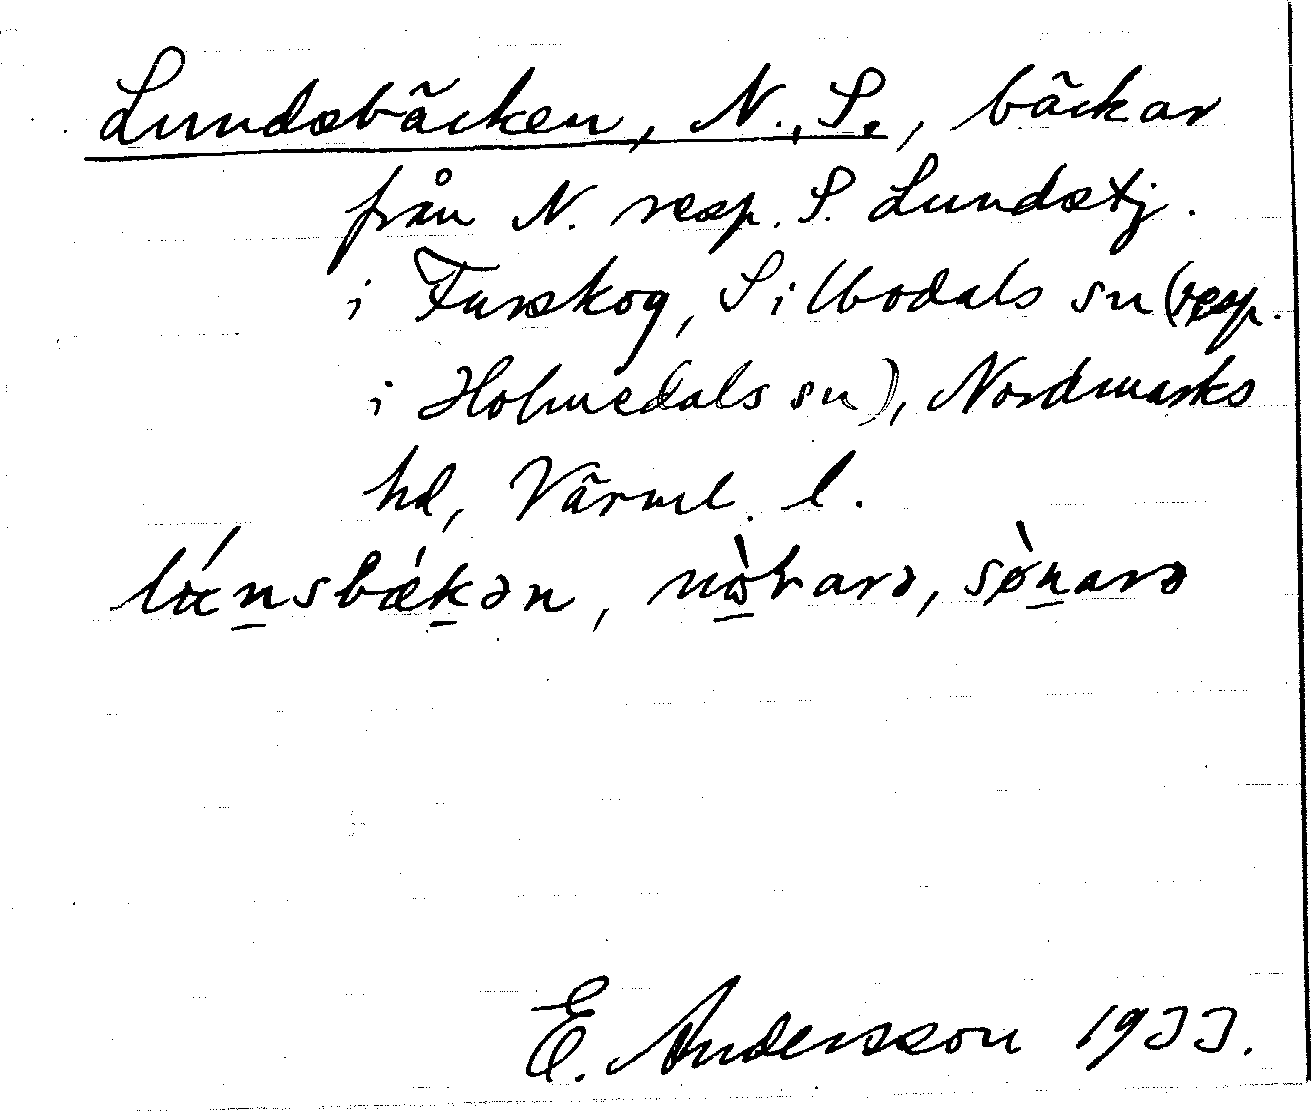 Lundsbäcken, N., S., bäckar
från N. resp. S. Lundstj.
i Furskog, Silbodals sn (resp.
i Holmedals sn), Nordmarks
hd, Värml. l.
E. Andersson 1933.